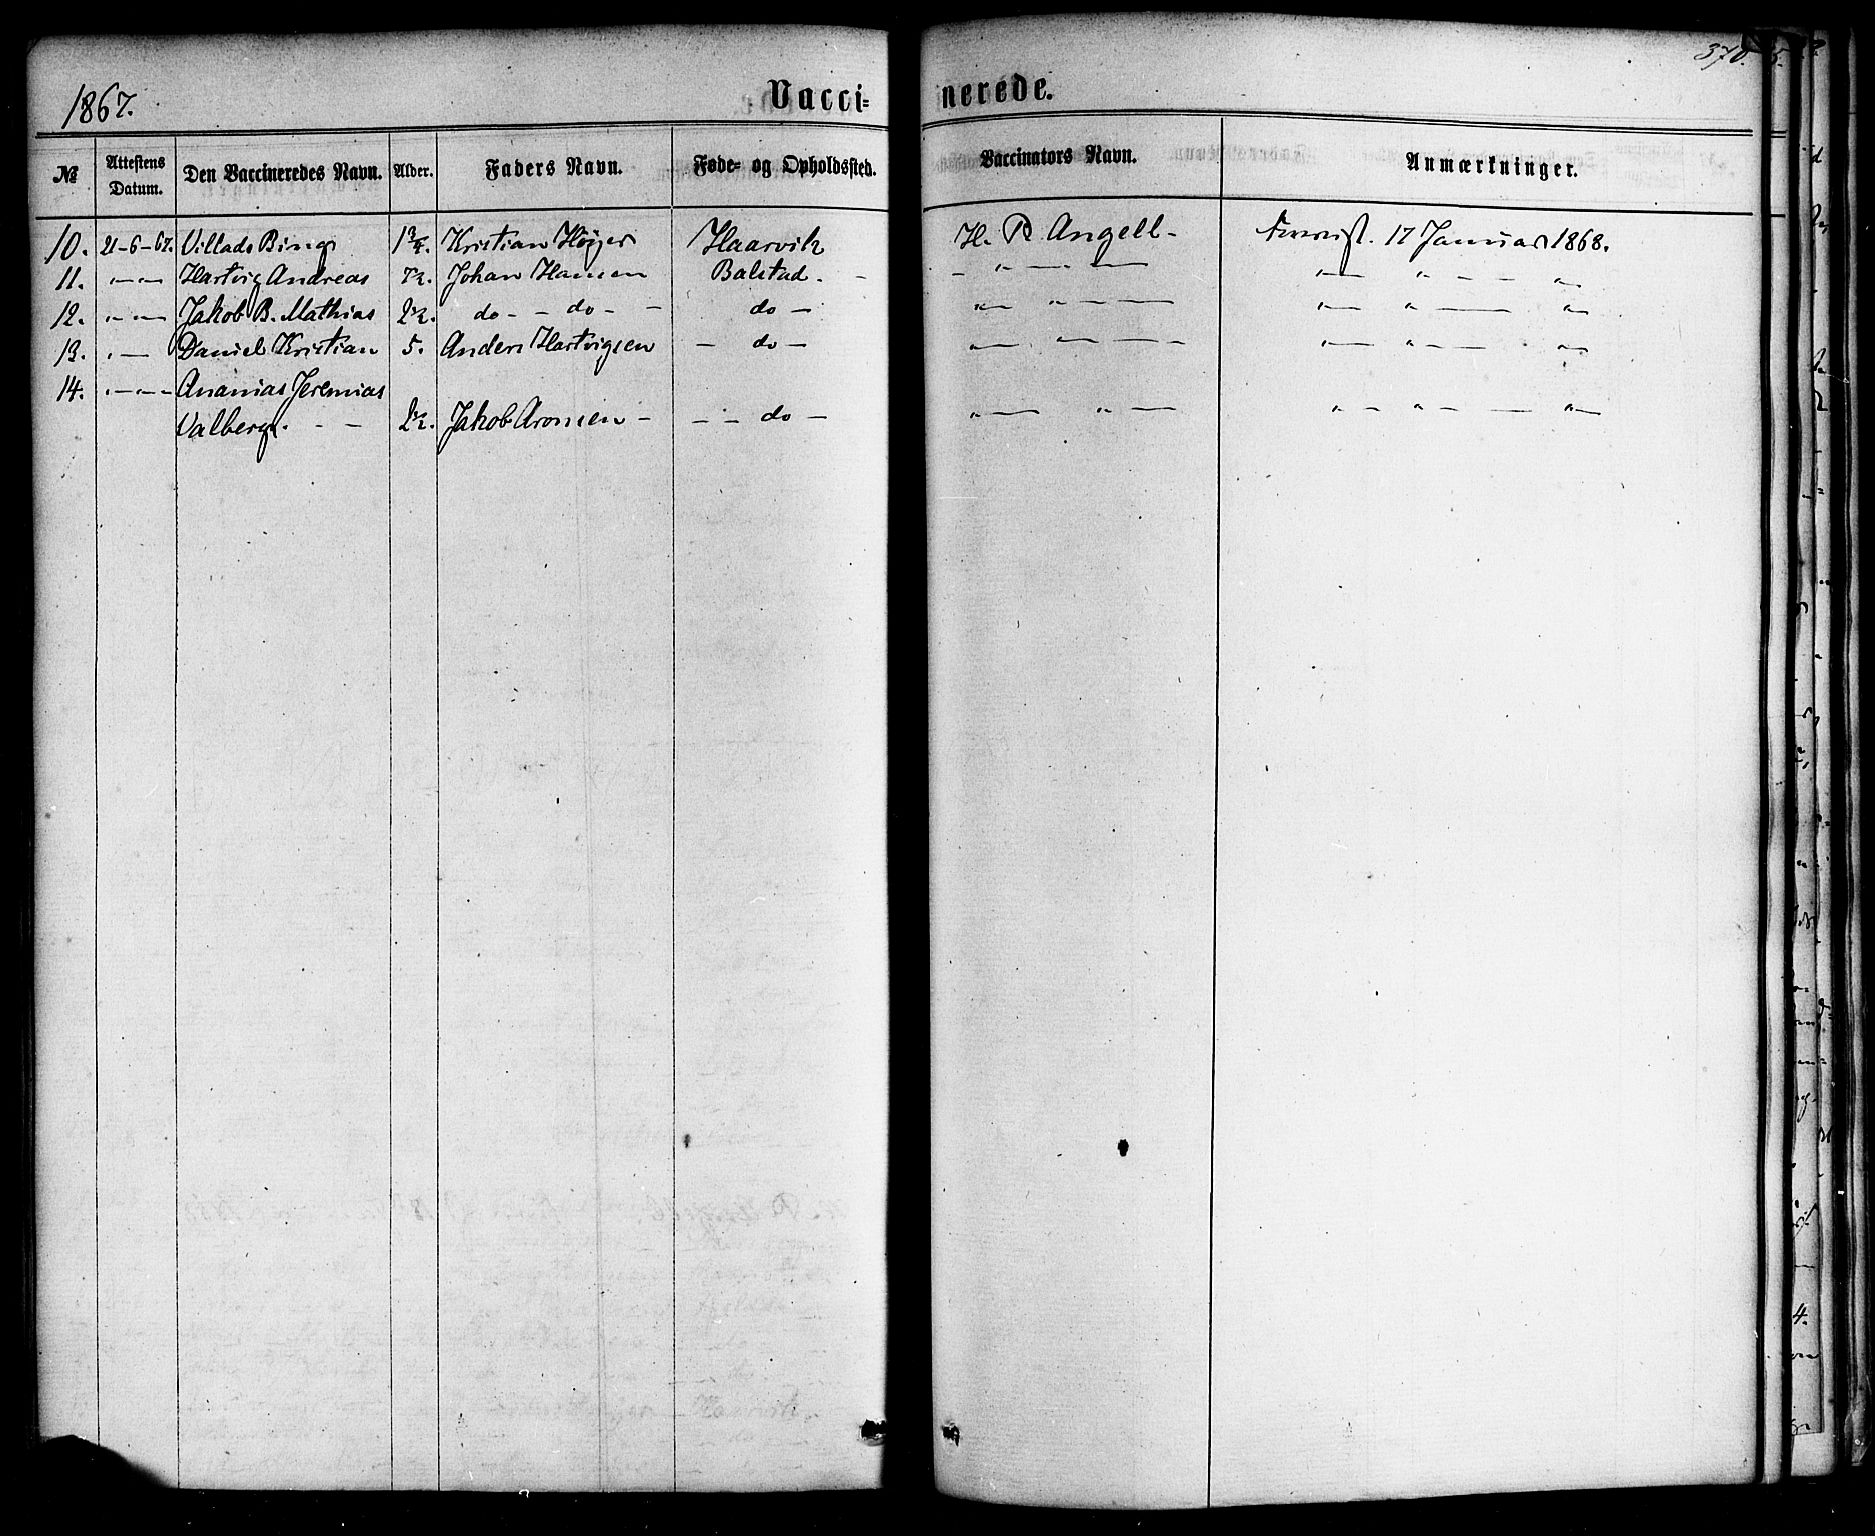 1867. Vacci= nerede. 370.
№ Attestens Datum. Den Vaccineredes Navn. Alder. Faders Navn. Føde- og Opholdssted. Vaccinators Navn. Anmærkninger.
10. 21-6-67. Villads Bing 1 3/4. Kristian Højer Haarvik H. R. Angell - 17 Januar 1868.
11. -"-"- Hartvig Andreas Johan Hansen Balstad. - - " - " - - " - " - - "
12. -"-"- Jakob B. Mathias do - - do - - do - " - " - - - " - " - - "
13. " - Daniel Kristian 5. Anders Hartvigsen - do - " - " - - - " - " - - "
14. -"-"- Ananias Jeremias
Valberg. - - Jakob Aronsen - - - do - " - " - - " - " - " - - " -